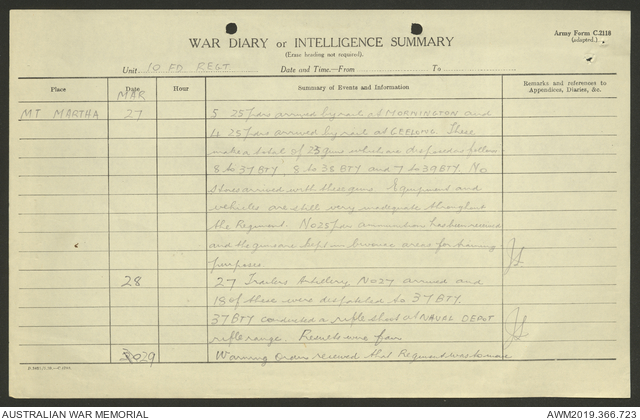 Army Form C.2118
(adapted.)
WAR DIARY or INTELLIGENCE SUMMARY
(Erase heading not required).
Unit 10 FD REGT Date and Time.—From To
Place Date Hour Summary of Events and Information Remarks and references to
Appendices, Diaries, &c.
MAR
MT MARTHA 27 5 25pdrs arrived by rail at MORNINGTON and
4 25pdrs arrived by rail at GEELONG These
make a total of 23 guns which are disposed as follows
8 to 37 BTY 8 to 38 BTY and 7 to 39 BTY. No
stores arrived with these guns. Equipment and
vehicles are still very inadequate throughout
the Regiment. No 25pdr ammunition has been received
and the guns are kept in areas for training
purposes
28 27 Trailers Artillery No27 arrived and
18 of these were despatched to 37 BTY.
37 BTY conducted a rifle shoot at NAVAL DEPOT
rifle range. Results were fair
29 Warning Order received that Regiment was to move
AUSTRALIAN WAR MEMORIAL AWM2019.366.723